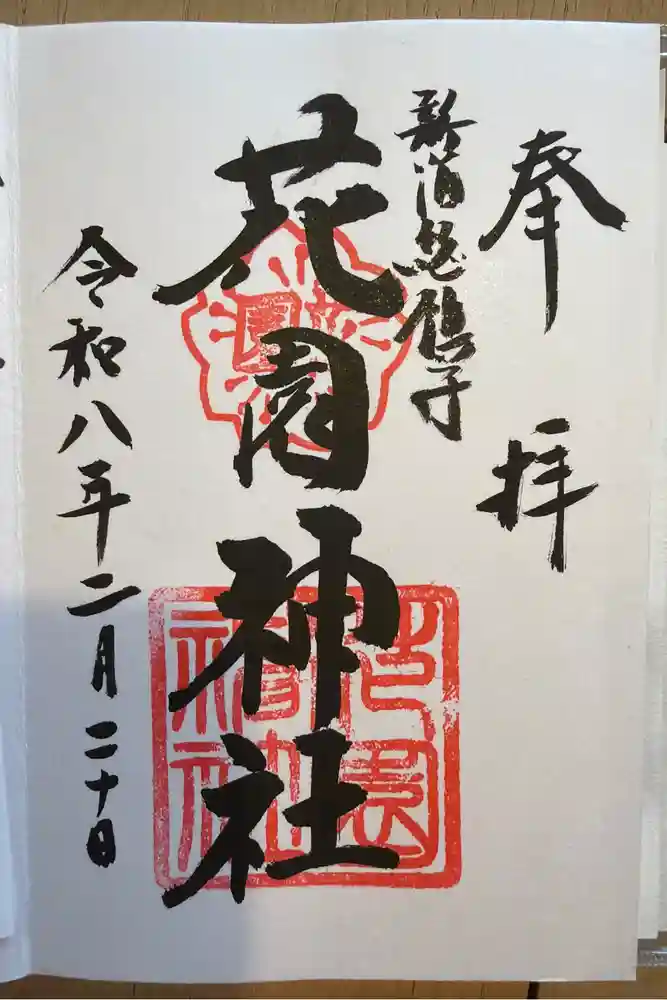 奉拝
新宿総鎮守
花園神社
令和八年二月二十日
花園稲荷神社